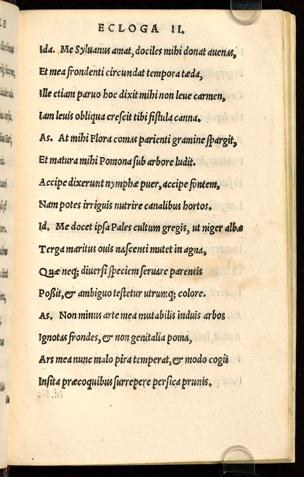 ECLOGA II.
Ida. Me Syluanus amat, dociles mihi donat auenas,
Et mea frondenti circundat tempora tæda,
Ille etiam paruo hoc dixit mihi non leue carmen,
Iam leuis obliqua crescit tibi fistula canna.
As. At mihi Flora comas parienti gramine spargit,
Et matura mihi Pomona sub arbore ludit.
Accipe dixerunt nymphæ puer, accipe fontem,
Nam potes irriguis nutrire canalibus hortos.
Id. Me docet ipsa Pales cultum gregis, ut niger albæ
Terga maritus ouis nascenti mutet in agna,
Quæ neq; diuersi speciem seruare parentis
Poßit, & ambiguo testetur utrumq; colore.
As. Non minus arte mea mutabilis induis arbos
Ignotas frondes, & non genitalia poma,
Ars mea nunc malo pira temperat, & modo cogit
Insita præcoquibus surrepere persica prunis.